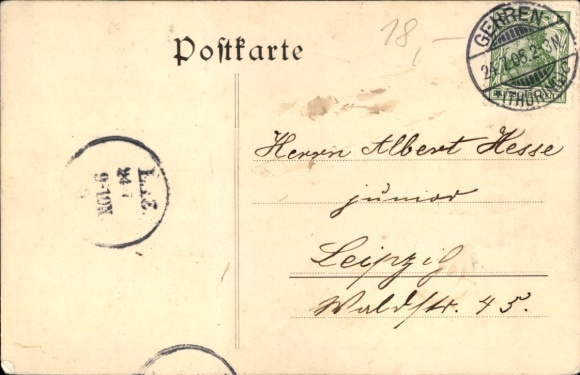 18,-
Postkarte
GEHREN
24.7.05.2-3N.
*(THÜRING)C
Herrn Albert Hesse
junior
Leipzig
Waldstr. 45.
L.
24 7
9-10N